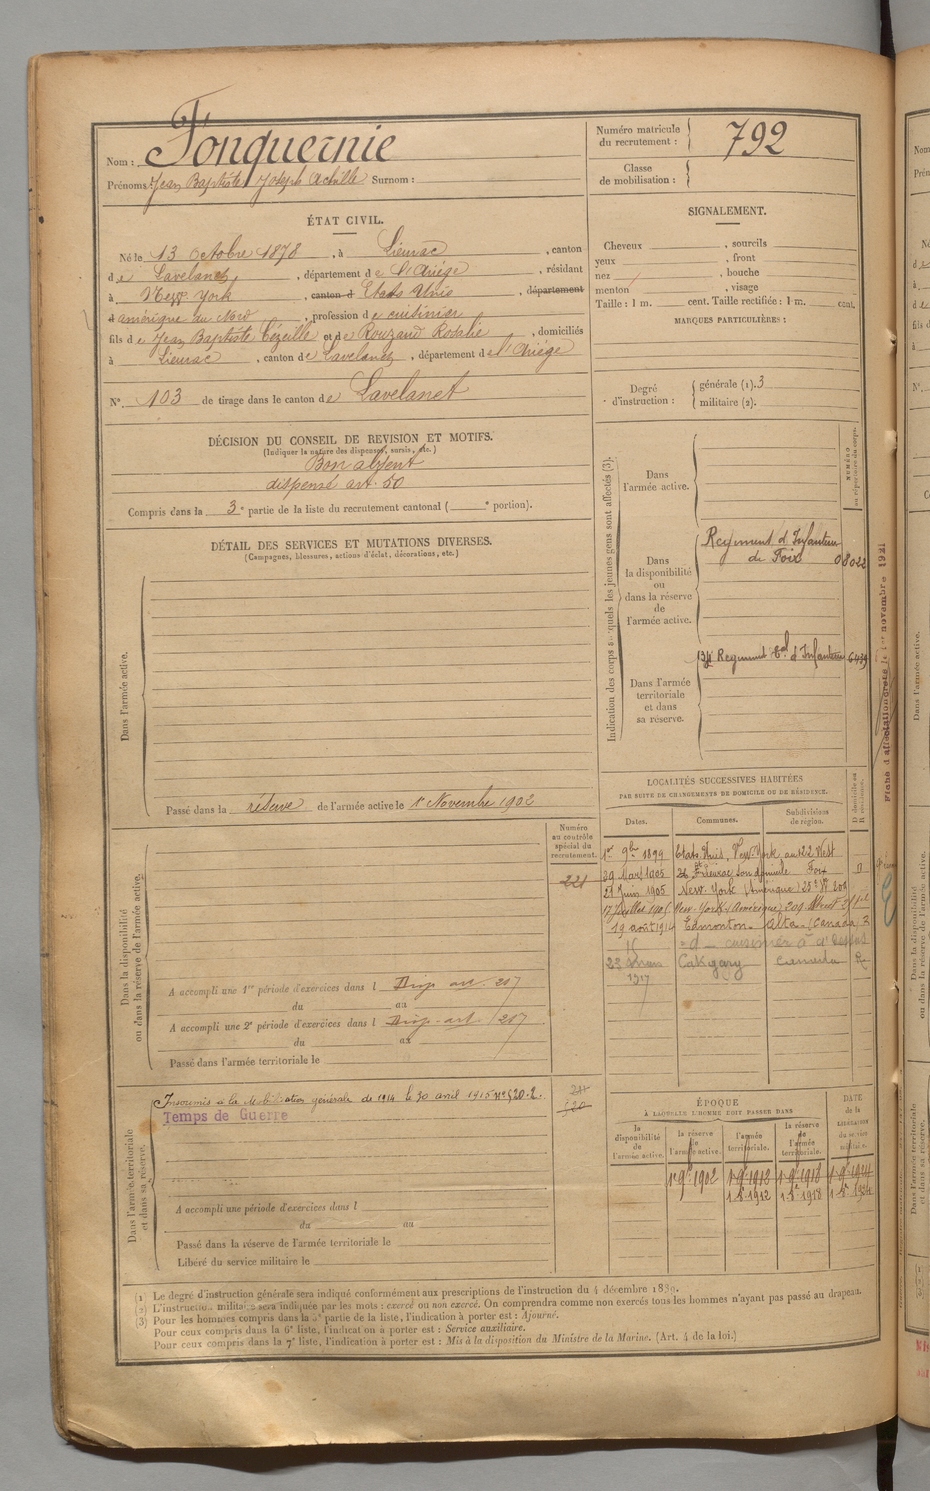 Nom : Fonquernie
Prénoms : Jean Baptiste Joseph Achille Surnom :
ÉTAT CIVIL.
Né le 13 Octobre 1878, à Lieurac, canton
de Lavelanet, département de l'Ariège, résidant
à New York, canton d Etats Unis, département
d amérique du Nord, profession de cuisinier
fils de Jean Baptiste Cézeille et de Rouzaud Rosalie, domiciliés
à Lieurac, canton de Lavelanet, département de l'Ariège
N° 103 de tirage dans le canton de Lavelanet
DÉCISION DU CONSEIL DE REVISION ET MOTIFS.
(Indiquer la nature des dispenses, sursis, etc.)
Bon absent
dispensé art. 50
Compris dans la 3e partie de la liste du recrutement cantonal ( e portion).
DÉTAIL DES SERVICES ET MUTATIONS DIVERSES.
(Campagnes, blessures, actions d'éclat, décorations, etc.)
Dans l'armée active.
Passé dans la réserve de l'armée active le 1r Novembre 1902
Dans la disponibilité
ou dans la réserve de l'armée active.
Numéro
au contrôle
spécial du
recrutement.
221
A accompli une 1re période d'exercices dans l Disp. art. 217
du au
A accompli une 2e période d'exercices dans l Disp. art. 217
du au
Passé dans l'armée territoriale le
Dans l'armée territoriale
et dans sa réserve.
Insoumis à la Mobilisation générale de 1914 le 30 avril 1915 N° 520.2.
Temps de Guerre
520
A accompli une période d'exercices dans l
du au
Passé dans la réserve de l'armée territoriale le
Libéré du service militaire le
Numéro matricule
du recrutement : 792
Classe
de mobilisation :
SIGNALEMENT.
Cheveux , sourcils
yeux , front
nez , bouche
menton , visage
Taille : 1 m. cent. Taille rectifiée : 1 m. cent.
MARQUES PARTICULIÈRES :
Degré
d'instruction :
générale (1). 3
militaire (2).
Indication des corps auxquels les jeunes gens sont affectés (3).
NUMÉRO
au répertoire du corps.
Dans
l'armée active.
Dans
la disponibilité
ou
dans la réserve
de
l'armée active.
Regiment d'Infanterie
de Foix 08022
Dans l'armée
territoriale
et dans
sa réserve.
Regiment tal d'Infanterie 6439
LOCALITÉS SUCCESSIVES HABITÉES
PAR SUITE DE CHANGEMENTS DE DOMICILE OU DE RÉSIDENCE.
Dates.
Communes.
Subdivisions
de région.
D domicile ou
R résidence.
1er 9bre 1899 Etats Unis, New-York, au 122 West
29 Mars 1905 son domicile Foix D
21 Juin 1905 New-York (Amérique) 209
17 Juillet 1905 New-York (Amérique) 209
19 août 1914 Edmonton Alta (Canada) R
d cuisinier
Calgary Canada R
1917
ÉPOQUE
À LAQUELLE L'HOMME DOIT PASSER DANS
la
disponibilité
de
l'armée active.
la réserve
de
l'armée active.
l'armée
territoriale.
la réserve
de
l'armée
territoriale.
DATE
de la
LIBÉRATION
du service
militaire.
1r 9e 1902 1r 9e 1912 1r 9e 1918 1r 9e 1924
1912 1918 1924
Fiche d'affectation novembre 1921
(1) Le degré d'instruction générale sera indiqué conformément aux prescriptions de l'instruction du 4 décembre 1889.
(2) L'instruction militaire sera indiquée par les mots : exercé ou non exercé. On comprendra comme non exercés tous les hommes n'ayant pas passé au drapeau.
(3) Pour les hommes compris dans la 5e partie de la liste, l'indication à porter est : Ajourné.
Pour ceux compris dans la 6e liste, l'indication à porter est : Service auxiliaire.
Pour ceux compris dans la 7e liste, l'indication à porter est : Mis à la disposition du Ministre de la Marine. (Art. 4 de la loi.)